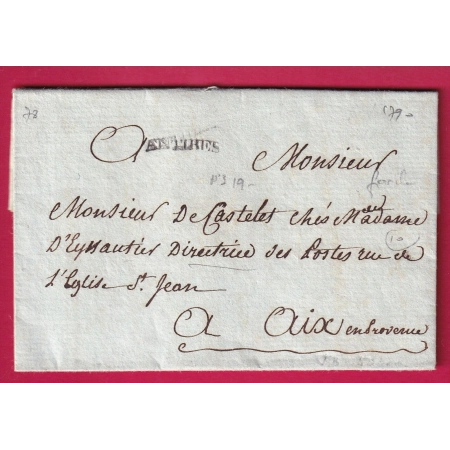 78 579-
A ANTIBES Monsieur
P3 19-
Monsieur De Castelet chés Madame
D'Eyssautier Directrice des Postes rue de
10
l'Eglise St. Jean
A Aix en Provence